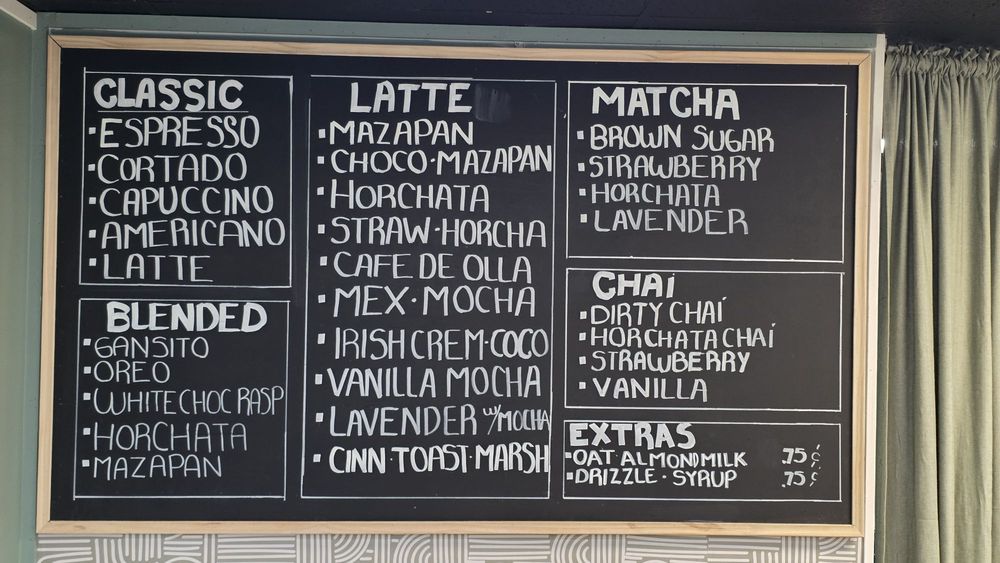 CLASSIC
▪ESPRESSO
▪CORTADO
▪CAPUCCINO
▪AMERICANO
▪LATTE
BLENDED
▪GANSITO
▪OREO
▪WHITE CHOC RASP
▪HORCHATA
▪MAZAPAN
LATTE
▪MAZAPAN
▪CHOCO·MAZAPAN
▪HORCHATA
▪STRAW·HORCHA
▪CAFE DE OLLA
▪MEX·MOCHA
▪IRISH CREM·COCO
▪VANILLA MOCHA
▪LAVENDER W/MOCHA
▪CINN·TOAST·MARSH
MATCHA
▪BROWN SUGAR
▪STRAWBERRY
▪HORCHATA
▪LAVENDER
CHAÍ
▪DIRTY CHAÍ
▪HORCHATA CHAÍ
▪STRAWBERRY
▪VANILLA
EXTRAS
▪OAT·ALMONDMILK .75¢
▪DRIZZLE·SYRUP .75¢